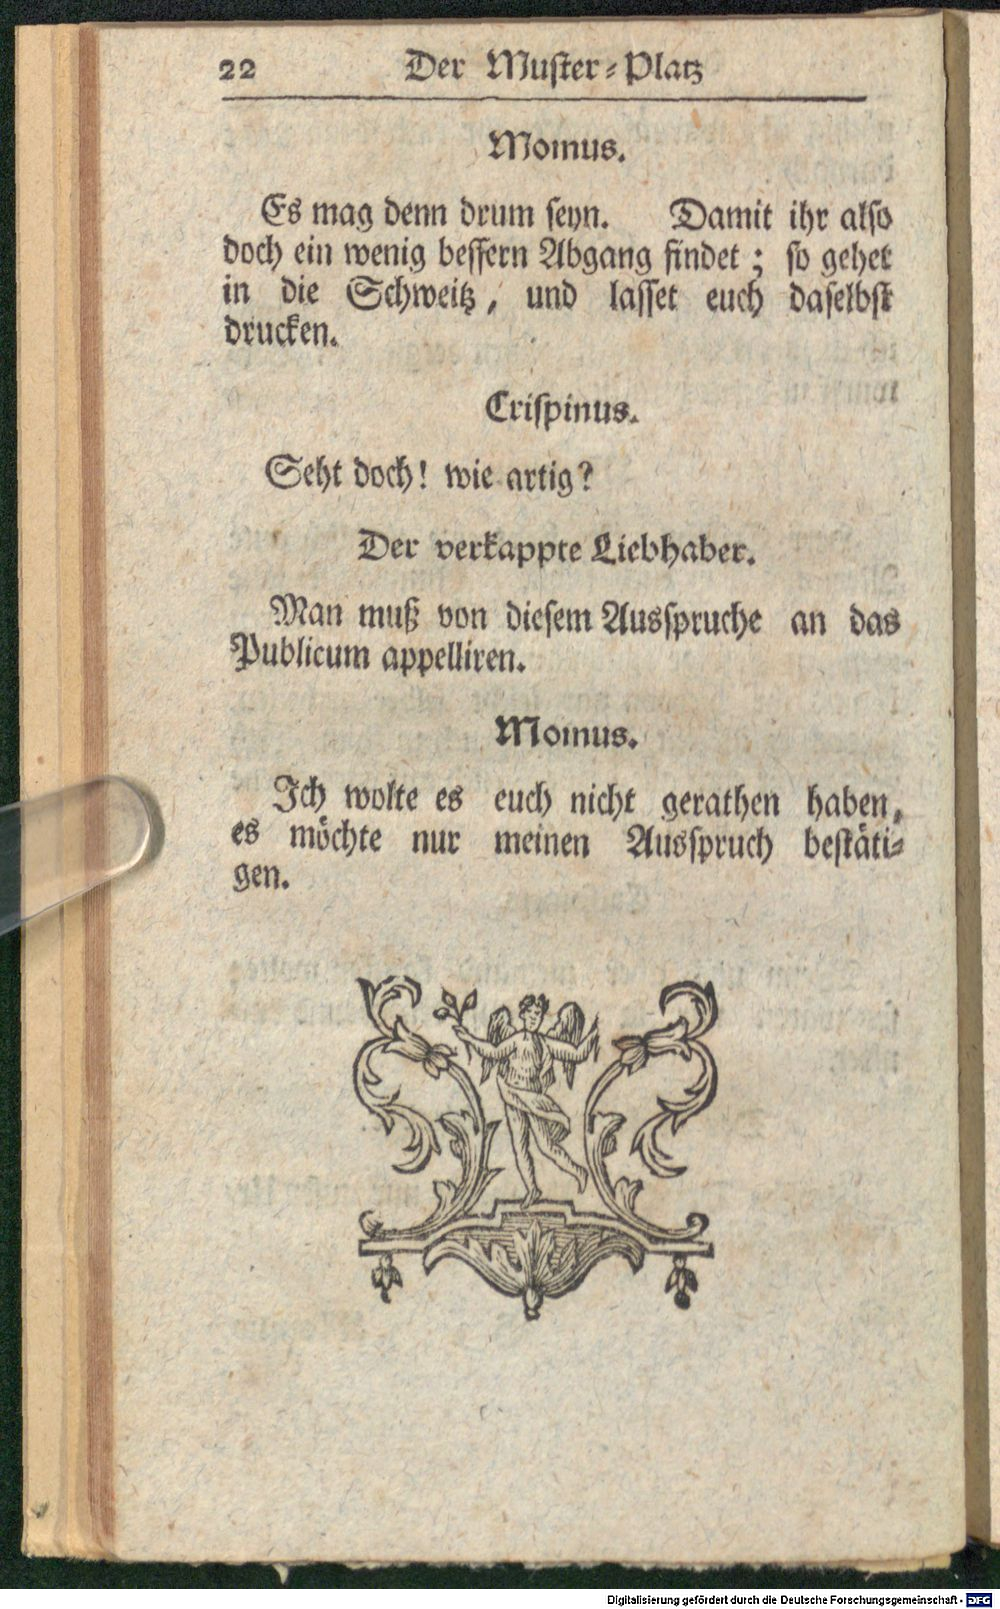 22 Der Muster-Platz
Momus.
Es mag denn drum seyn. Damit ihr also
doch ein wenig bessern Abgang findet; so gehet
in die Schweitz, und lasset euch daselbst
drucken.
Crispinus.
Seht doch! wie artig?
Der verkappte Liebhaber.
Man muß von diesem Ausspruche an das
Publicum appelliren.
Momus.
Ich wolte es euch nicht gerathen haben,
es möchte nur meinen Ausspruch bestäti-
gen.
Digitalisierung gefördert durch die Deutsche Forschungsgemeinschaft - DFG